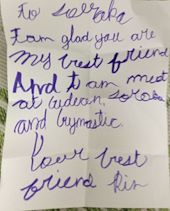 To Soraka
I am glad you are
my best friend
And I am meet
at Gudean, Soraka
and Gymnastic.
Your best
friend Rin